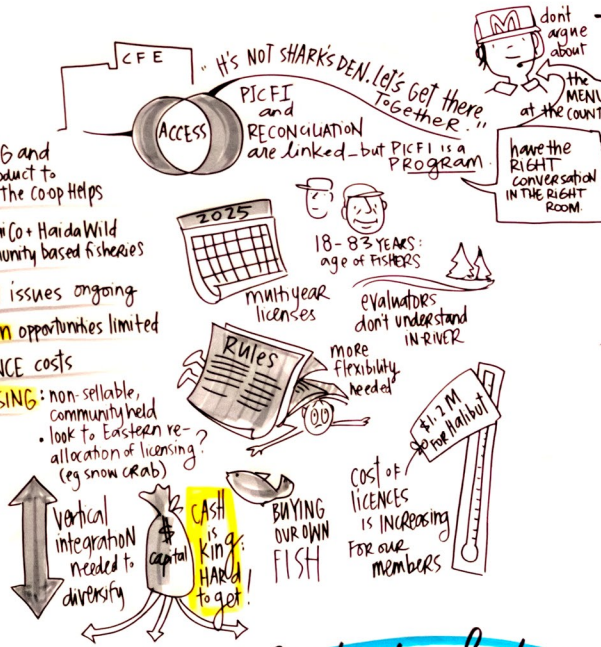 CFE
"IT'S NOT SHARK'S DEN. LET'S GET there
TOGETHER."
don't
argue
about
the
MENU
at the COUNT
M
have the
RIGHT
conversation
IN THE RIGHT
ROOM.
ACCESS
PICFI
and
RECONCILIATION
are linked – but PICFI is a
PROGRAM.
G and
oduct to
the Co-op Helps
iCo + Haida Wild
unity based fisheries
issues ongoing
n opportunities limited
NCE costs
SING: non-sellable,
community held
• look to Eastern re-
allocation of licensing?
(eg snow CRAB)
2025
multi year
licenses
18-83 YEARS:
age of FISHERS
evaluators
don't understand
IN-RIVER
RULES
more
flexibility
needed
$1.2M
FOR Halibut
COST OF
LICENCES
IS INCREASING
FOR OUR
members
vertical
integration
needed to
diversify
$
capital
CASH
is
King:
HARD
to get!
BUYING
OUR OWN
FISH